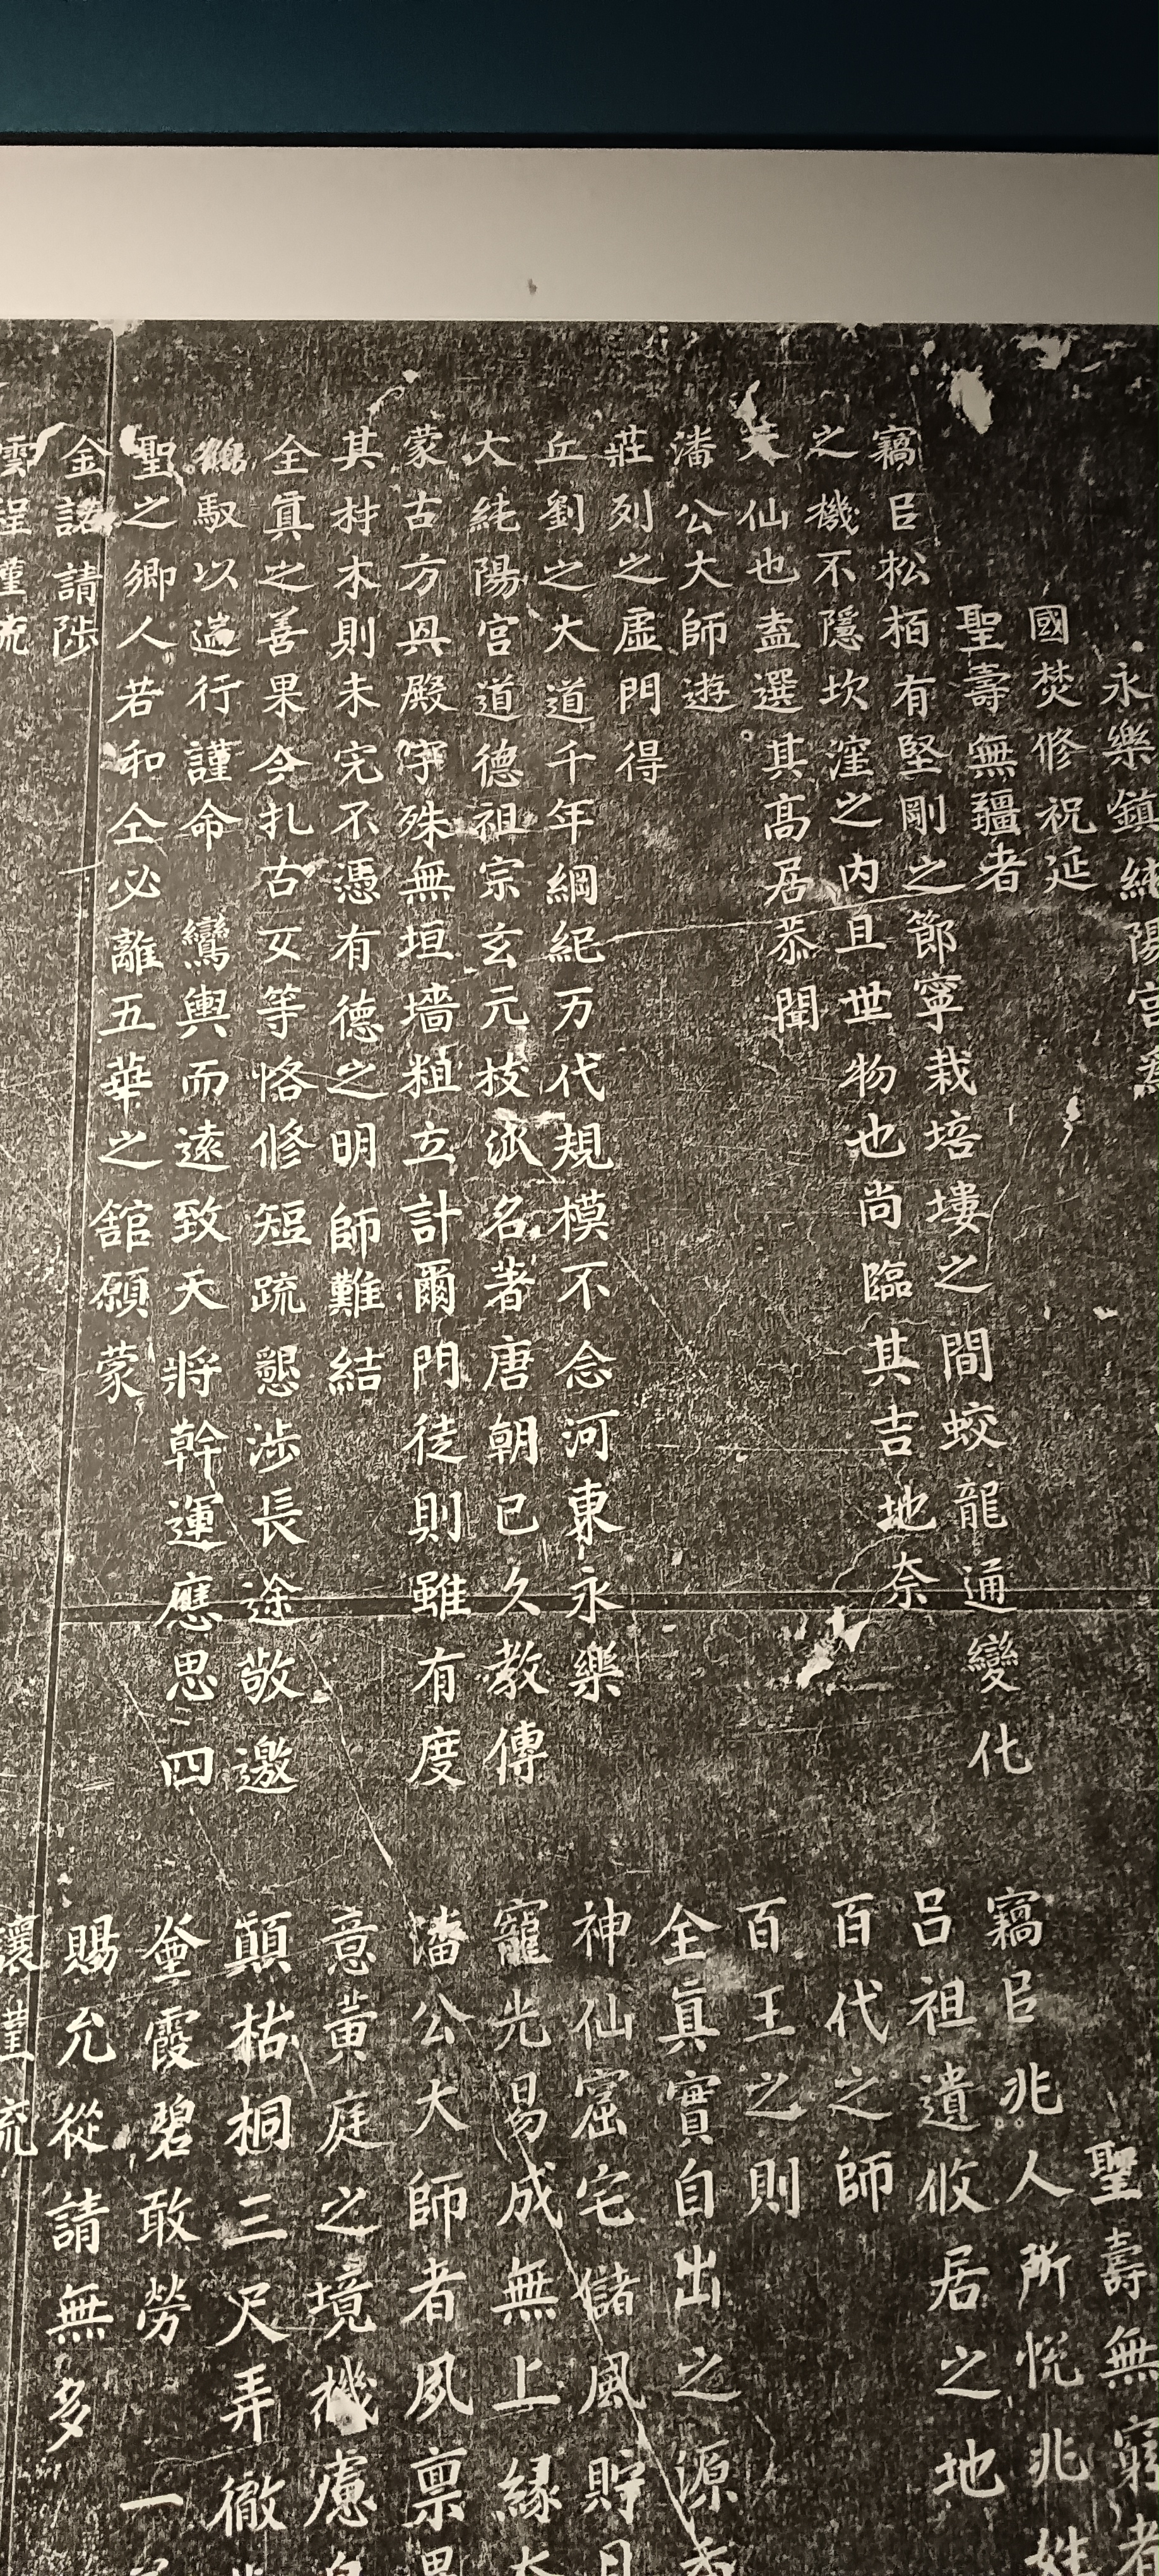 永樂鎮純陽宮爲
國焚修祝延
聖壽無疆者
竊㠯松栢有堅剛之節寧栽培塿之間蛟龍通變化
之機不隱坎窪之内且世物也尚臨其吉地奈
天仙也盍選其髙居恭聞
潘公大師遊
莊列之虛門得
丘劉之大道千年綱紀万代規模不念河東永樂
大純陽宮道德祖宗玄元枝派名著唐朝已久教傳
蒙古方興殿宇殊無垣墻粗立計爾門徒則雖有度
其材木則未完不憑有德之明師難結
全眞之善果今扎古女等恪修短疏懇涉長途敬邀
馭以遄行謹命鸞輿而遠致天將幹運應思四
聖之鄉人若和仝必離五華之舘願蒙
金諾請陟
雲程謹疏
聖壽無窮者
竊㠯兆人所恱兆姓
吕祖遺攸居之地
百代之師
百王之則
全眞實自出之源
神仙窟宅儲風貯月
寵光易成無上縁
潘公大師者夙禀
意黄庭之境機慮
顛枯桐三尺弄徹
霞碧敢勞一
賜允從請無多